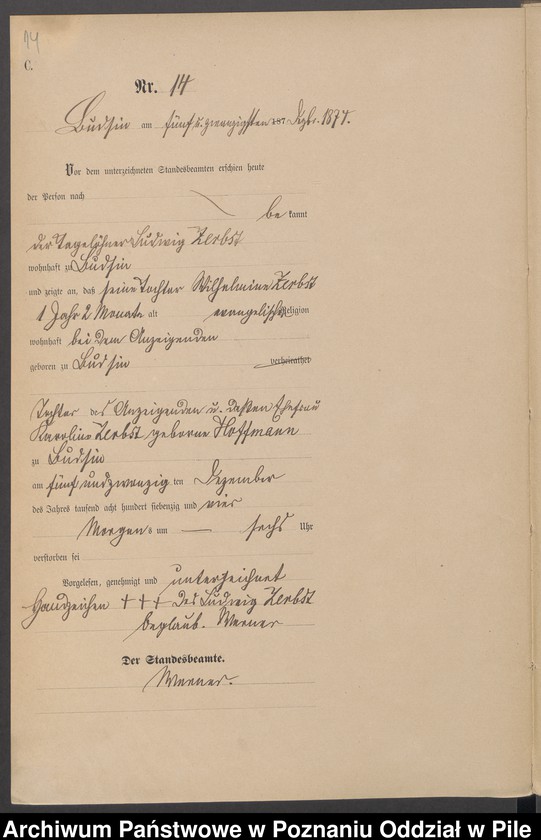 14
C.
Nr. 14
Budsin am fünf u. zwanzigsten 187 Dezbr. 1874.
Vor dem unterzeichneten Standesbeamten erschien heute
der Person nach
be kannt
der Tagelöhner Ludwig Zerbst
wohnhaft zu Budsin
und zeigte an, daß seine Tochter Wilhelmine Zerbst
1 Jahr 2 Monate alt evangelischer Religion
wohnhaft bei dem Anzeigenden
geboren zu Budsin verheirathet
Tochter des Anzeigenden u. dessen Ehefrau
Karoline Zerbst geborne Hoffmann
zu Budsin
am fünf und zwanzig ten Dezember
des Jahres tausend acht hundert siebenzig und vier
Morgens um — sechs Uhr
verstorben sei
Vorgelesen, genehmigt und unterzeichnet
Handzeichen +++ des Ludwig Zerbst
beglaub. Werner
Der Standesbeamte.
Werner.
Archiwum Państwowe w Poznaniu Oddział w Pile